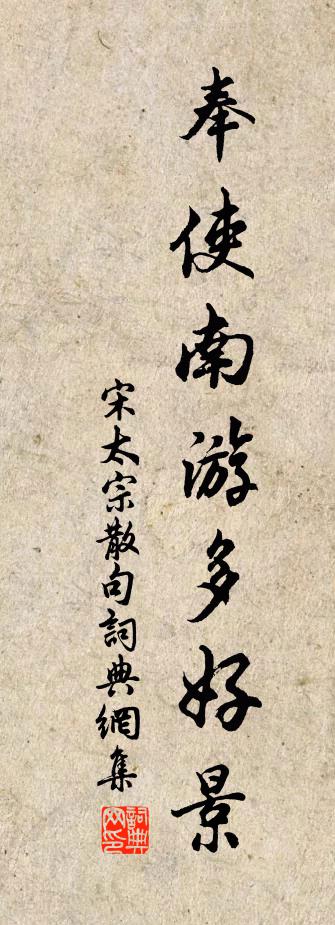 奉使南游多好景
宋太宗散句詞典網集
詞典网印